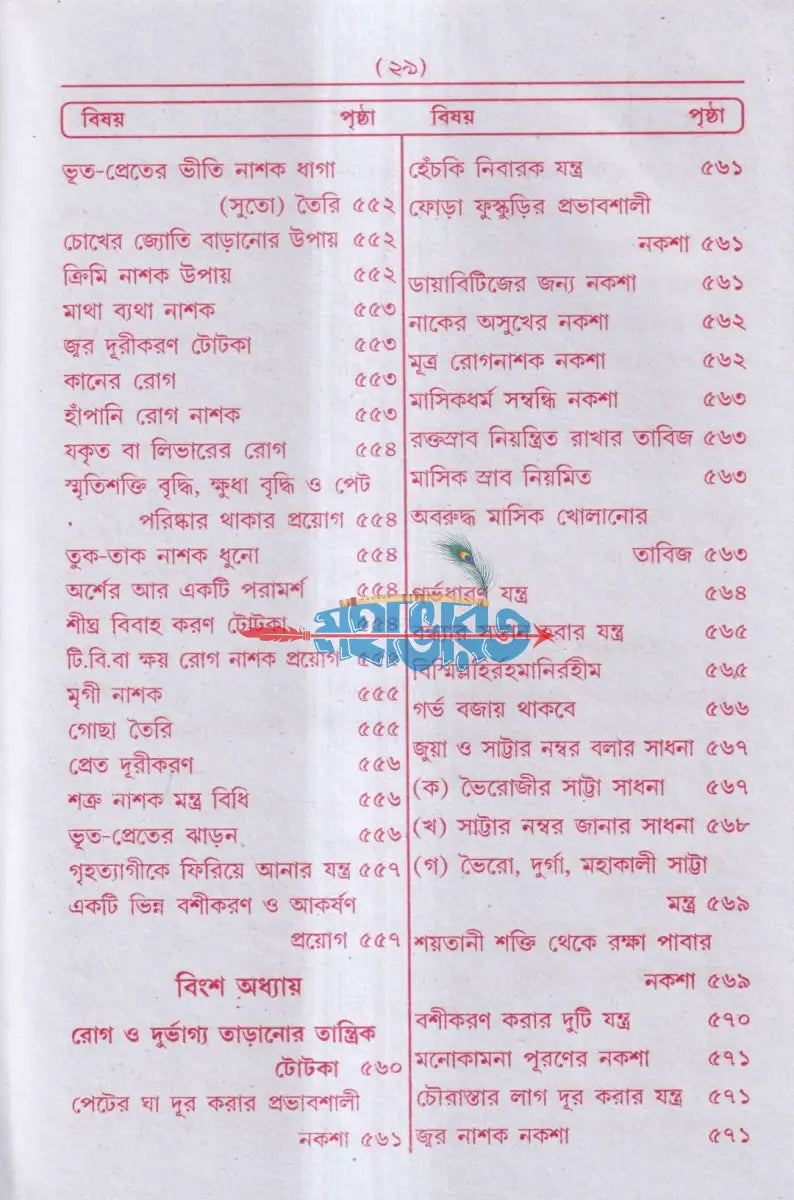 (২৯)
বিষয় পৃষ্ঠা বিষয় পৃষ্ঠা
ভূত-প্রেতের ভীতি নাশক ধাগা
(সুতো) তৈরি ৫৫২
চোখের জ্যোতি বাড়ানোর উপায় ৫৫২
ক্রিমি নাশক উপায় ৫৫২
মাথা ব্যথা নাশক ৫৫৩
জ্বর দূরীকরণ টোটকা ৫৫৩
কানের রোগ ৫৫৩
হাঁপানি রোগ নাশক ৫৫৩
যকৃত বা লিভারের রোগ ৫৫৪
স্মৃতিশক্তি বৃদ্ধি, ক্ষুধা বৃদ্ধি ও পেট
পরিষ্কার থাকার প্রয়োগ ৫৫৪
তুক-তাক নাশক ধুনো ৫৫৪
অর্শের আর একটি পরামর্শ ৫৫৪
শীঘ্র বিবাহ করণ টোটকা ৫৫৪
টি.বি.বা ক্ষয় রোগ নাশক প্রয়োগ
মৃগী নাশক ৫৫৫
গোছা তৈরি ৫৫৫
প্রেত দূরীকরণ ৫৫৬
শত্রু নাশক মন্ত্র বিধি ৫৫৬
ভূত-প্রেতের ঝাড়ন ৫৫৬
গৃহত্যাগীকে ফিরিয়ে আনার যন্ত্র ৫৫৭
একটি ভিন্ন বশীকরণ ও আকর্ষণ
প্রয়োগ ৫৫৭
বিংশ অধ্যায়
রোগ ও দুর্ভাগ্য তাড়ানোর তান্ত্রিক
টোটকা ৫৬০
পেটের ঘা দূর করার প্রভাবশালী
নকশা ৫৬১
হেঁচকি নিবারক যন্ত্র ৫৬১
ফোড়া ফুস্কুড়ির প্রভাবশালী
নকশা ৫৬১
ডায়াবিটিজের জন্য নকশা ৫৬১
নাকের অসুখের নকশা ৫৬২
মূত্র রোগনাশক নকশা ৫৬২
মাসিকধর্ম সম্বন্ধি নকশা ৫৬৩
রক্তস্রাব নিয়ন্ত্রিত রাখার তাবিজ ৫৬৩
মাসিক স্রাব নিয়মিত ৫৬৩
অবরুদ্ধ মাসিক খোলানোর
তাবিজ ৫৬৩
গর্ভধারণ যন্ত্র ৫৬৪
মহাভারত
করার যন্ত্র ৫৬৫
বিস্মিল্লাহিরহমানিরহীম ৫৬৫
গর্ভ বজায় থাকবে ৫৬৬
জুয়া ও সাট্টার নম্বর বলার সাধনা ৫৬৭
(ক) ভৈরোজীর সাট্টা সাধনা ৫৬৭
(খ) সাট্টার নম্বর জানার সাধনা ৫৬৮
(গ) ভৈরো, দুর্গা, মহাকালী সাট্টা
মন্ত্র ৫৬৯
শয়তানী শক্তি থেকে রক্ষা পাবার
নকশা ৫৬৯
বশীকরণ করার দুটি যন্ত্র ৫৭০
মনোকামনা পূরণের নকশা ৫৭১
চৌরাস্তার লাগ দূর করার যন্ত্র ৫৭১
জ্বর নাশক নকশা ৫৭১